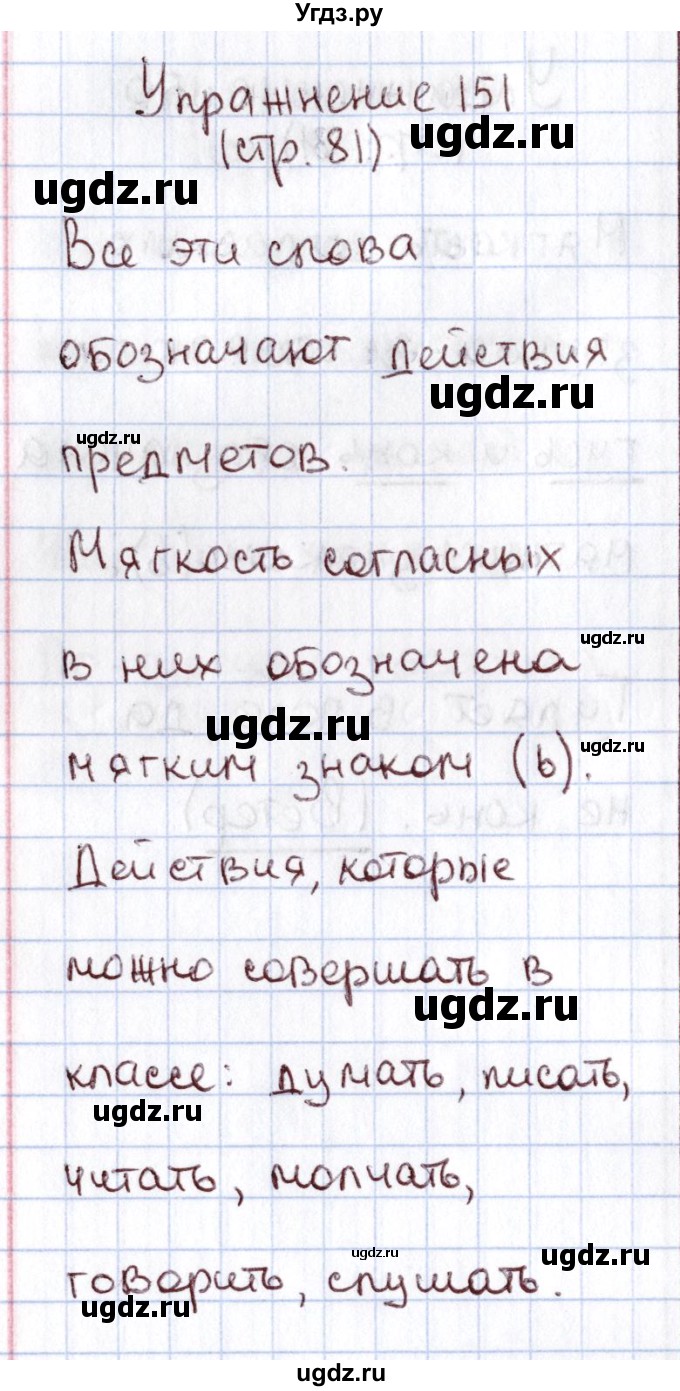 Угдз.ру
Упражнение 151
ugdz.ru
(стр. 81)
ugdz.ru
Все эти слова
обозначают действия
ugdz.ru
ugdz.ru
предметов.
Мягкость согласных
ugdz.ru
в них обозначена
ugdz.ru
ugdz.ru
мягким знаком (ь).
Действия, которые
можно совершать в
ugdz.ru
классе: думать, писать,
ugdz.ru
читать, молчать,
ugdz.ru
ugdz.ru
говорить, слушать.
ugdz.ru
ugdz.ru